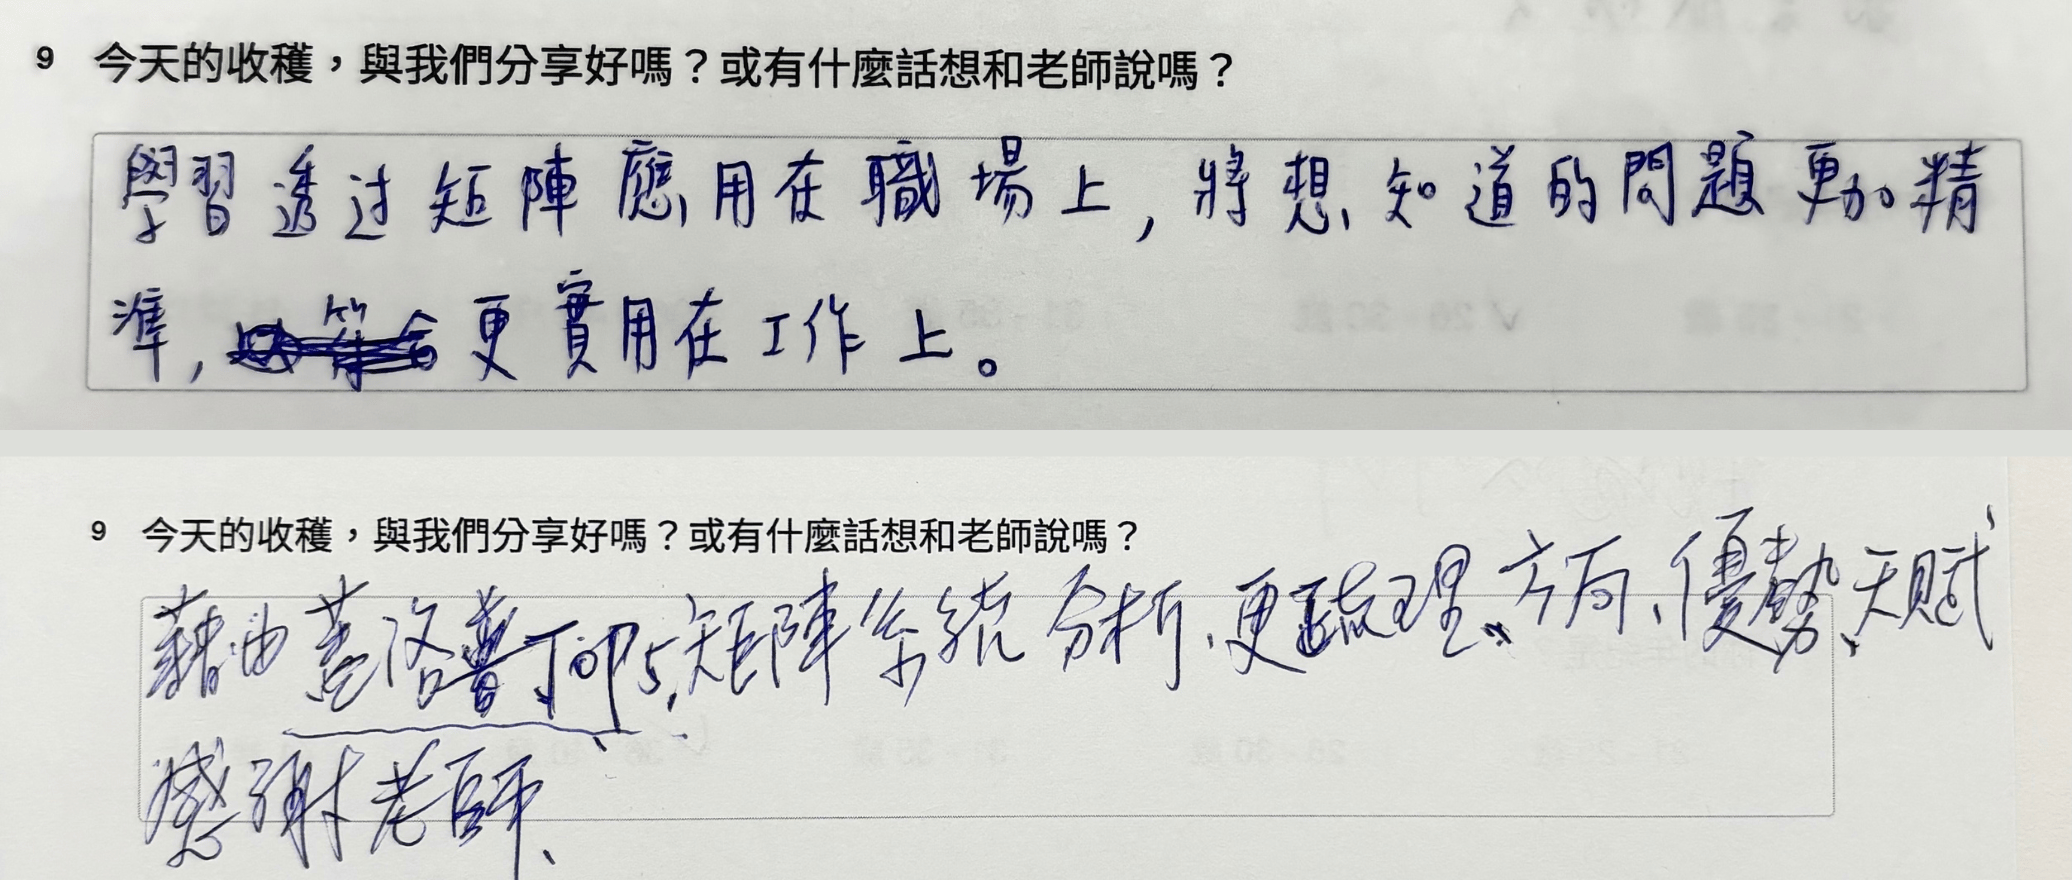 9 今天的收穫，與我們分享好嗎？或有什麼話想和老師說嗎？
學習透过矩陣應用在職場上，將想知道的問題更加精
準，更實用在工作上。
9 今天的收穫，與我們分享好嗎？或有什麼話想和老師說嗎？
藉由蓋洛普TOP5、矩陣系統分析、更疏理、方向、優勢、天賦
感謝老師、